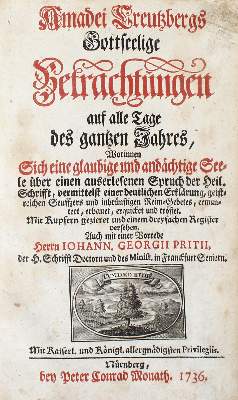 Amadei Creutzbergs
Gottseelige
Betrachtungen
auf alle Tage
des gantzen Jahres,
Worinnen
Sich eine glaubige und andächtige See-
le über einen auserlesenen Spruch der Heil.
Schrifft, vermittelst einer deutlichen Erklärung, geist-
reichen Seuffzers und inbrünstigen Reim-Gebetes, ermun-
tert, erbauet, erquicket und tröstet.
Mit Kupfern gezieret und einem dreyfachen Register
versehen.
Auch mit einer Vorrede
Herrn IOHANN. GEORGII PRITII,
der H. Schrifft Doctorn und des Minist. in Franckfurt Seniorn.
Mit Kaiserl. und Königl. allergnädigsten Privilegiis.
Nürnberg,
bey Peter Conrad Monath. 1736.